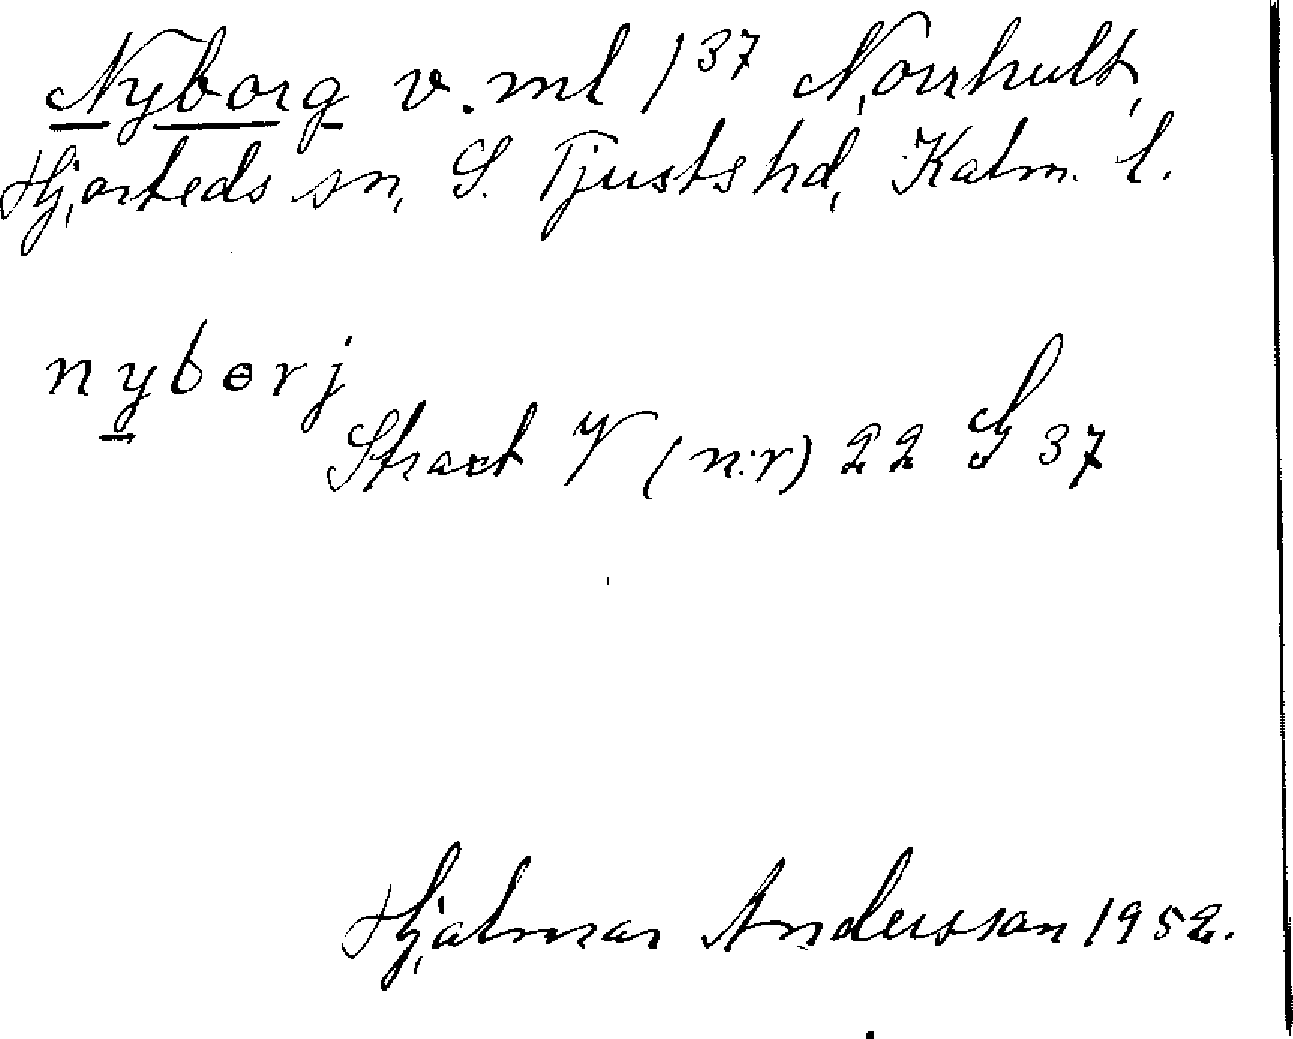 Nyborg v. ml 1³⁷ Norrhult,
Hjorteds sn, S. Tjusts hd, Kalm. l.
nyborj
Strax V (n:r) 22 G 37
Hjalmar Andersson 1952.